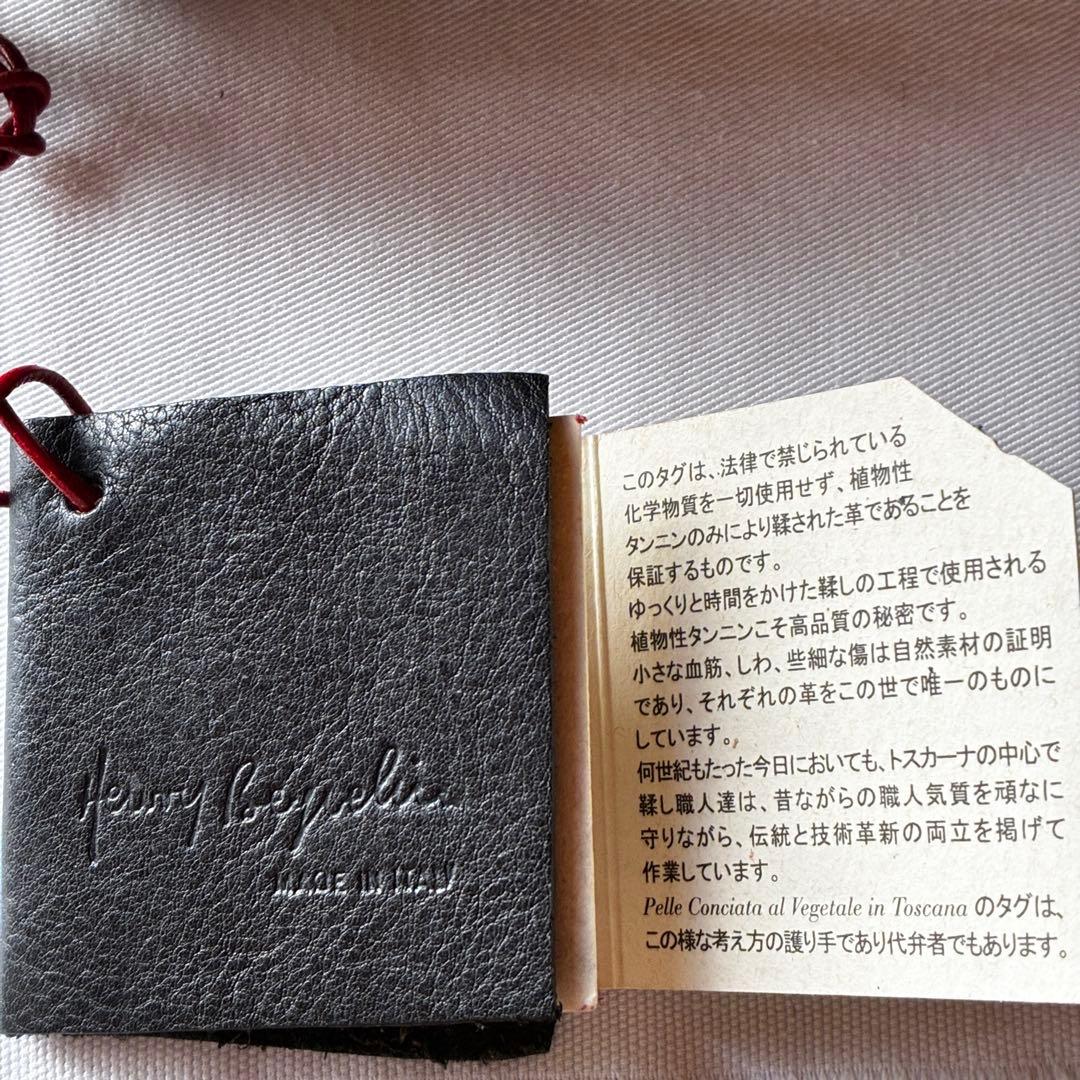 Henry Beguelin
MADE IN ITALY
このタグは、法律で禁じられている
化学物質を一切使用せず、植物性
タンニンのみにより鞣された革であることを
保証するものです。
ゆっくりと時間をかけた鞣しの工程で使用される
植物性タンニンこそ高品質の秘密です。
小さな血筋、しわ、些細な傷は自然素材の証明
であり、それぞれの革をこの世で唯一のものに
しています。
何世紀もたった今日においても、トスカーナの中心で
鞣し職人達は、昔ながらの職人気質を頑なに
守りながら、伝統と技術革新の両立を掲げて
作業しています。
Pelle Conciata al Vegetale in Toscana のタグは、
この様な考え方の護り手であり代弁者でもあります。